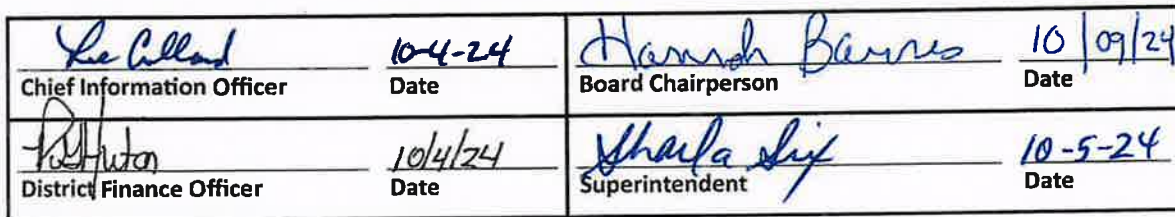 10-4-24 Hannah Barnes 10/09/24
Chief Information Officer Date Board Chairperson Date
10/4/24 Sharla Six 10-5-24
District Finance Officer Date Superintendent Date